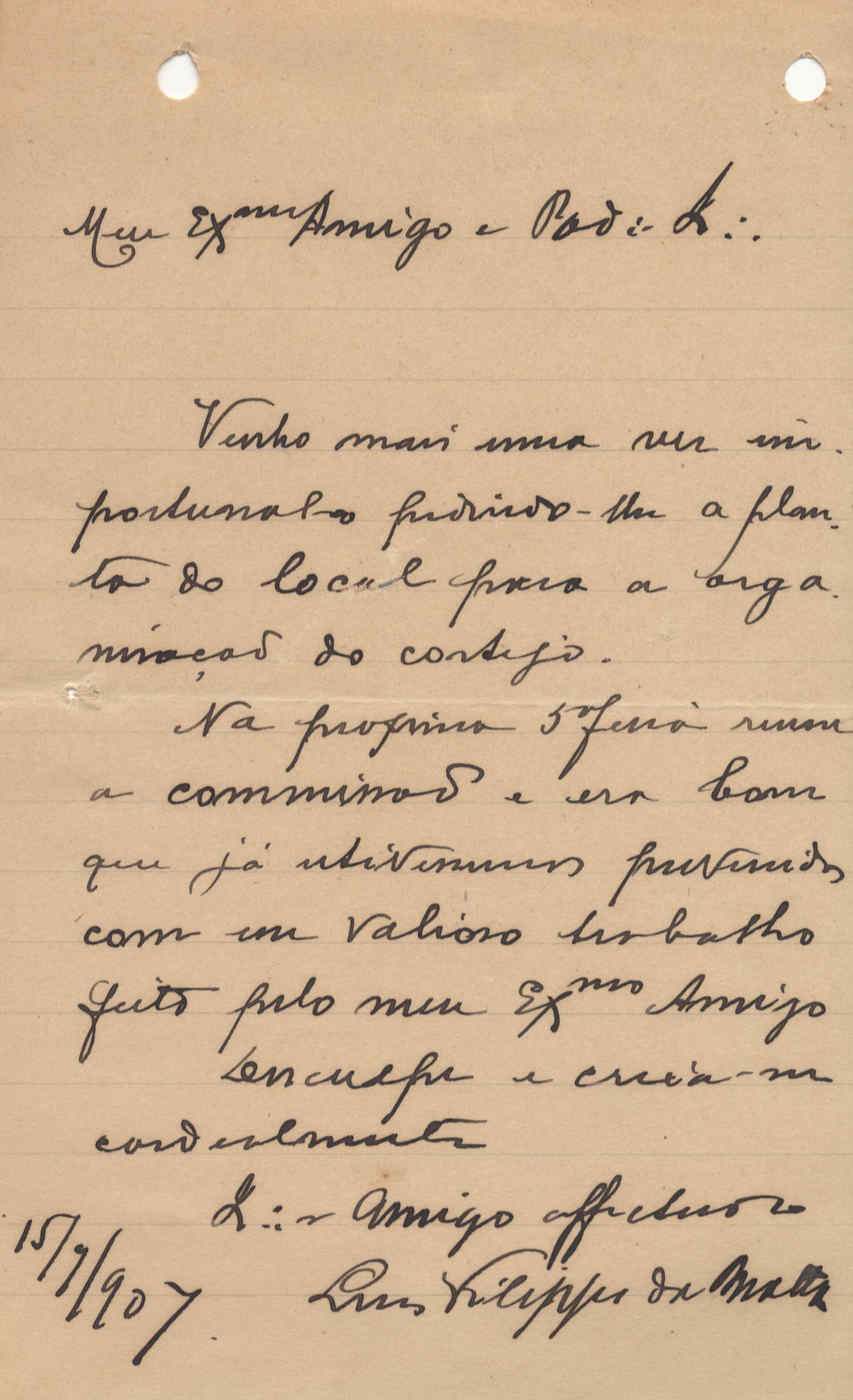 Meu Exmo Amigo e Pod∴ I∴
Venho mais uma vez im-
portunal-o pedindo-lhe a plan-
ta do local para a orga-
nisação do cortejo.
Na proxima 5ª feira reune
a commissão e era bom
que já estivessemos prevenidos
com um valioso trabalho
feito pelo meu Exmo Amigo
Desculpe e creia-me
cordealmente
I∴ e Amigo affectuoso
15/7/907
Luis Filippe da Matta